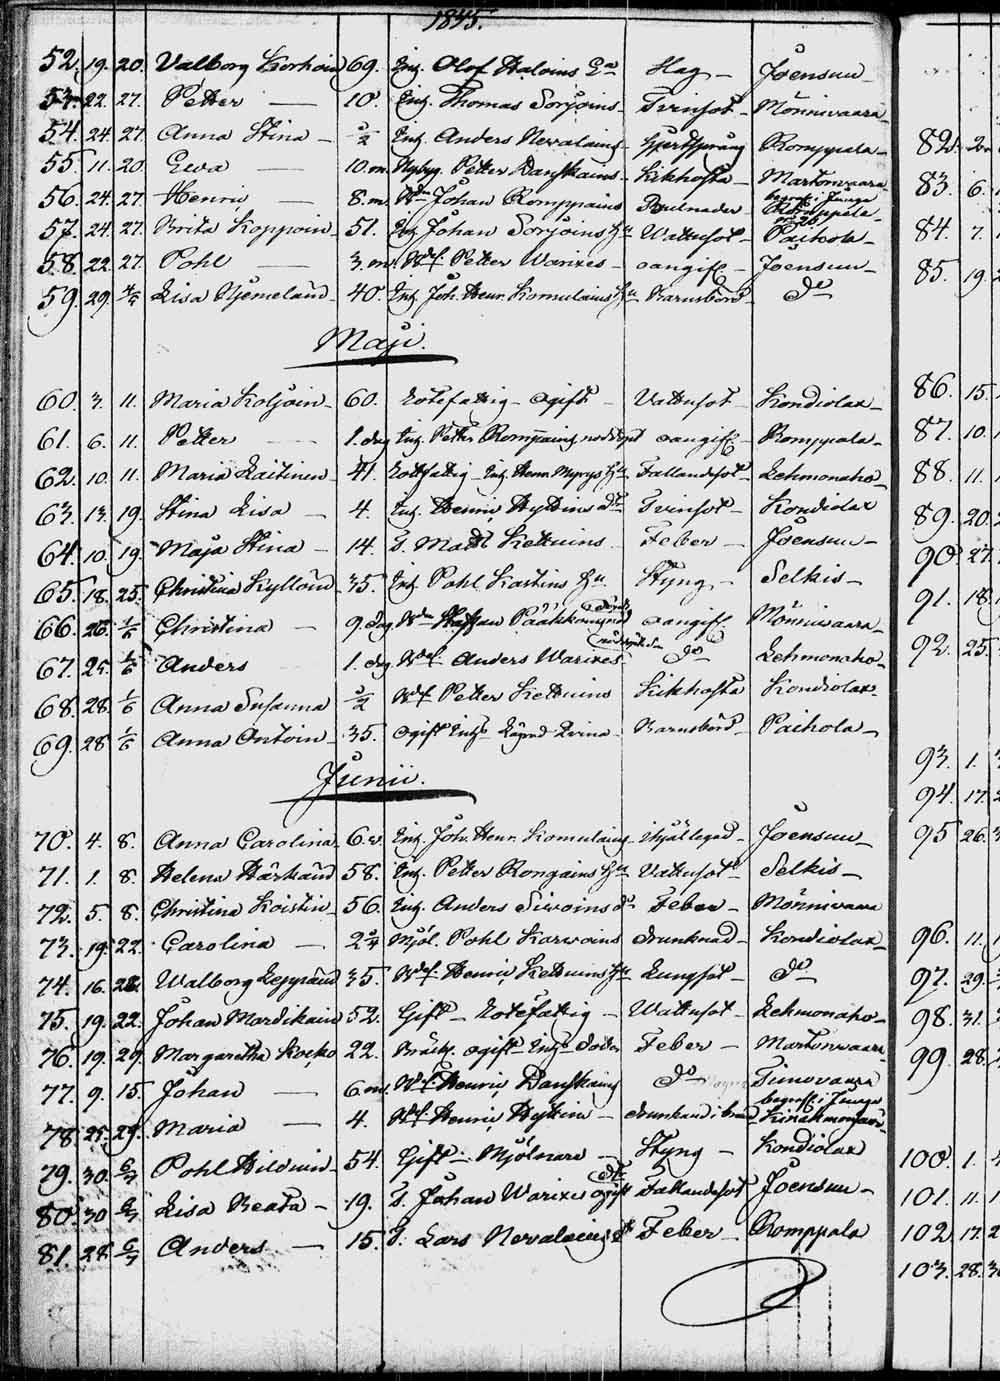 1845.
52. 19. 20. Valborg Korhoin 69. Inh. Olof Haloins Ea Slag – Joensuu
53. 22. 27. Petter — 10. Inh. Thomas Sorjoins – Tvinsot – Mönnivaara
54. 24. 27. Anna Stina – 3/2 Inh. Anders Nevalains – Hjertsprång Romppala –
55. 11. 20. Ewa — 10. m. Nybyg. Petter Danskains – Kikhosta – Martonvaara
56. 24. 27. Henric — 8. m. Johan Romppains Romppala –
57. 24. 27. Brita Koppoin – 51. Inh. Johan Sorjoins Hu Wattusot – Paihola –
58. 22. 27. Pohl — 3. m. Petter Warixes – oangifv. – Joensuu –
59. 29. 4/5 Lisa Njemeländ – 40. Inh. Joh. Henr. Komulains Hu Barnsbörd do
Maji.
60. 3. 11. Maria Koljoin – 60. Rotefattig – ogift – Vattusot – Kondiolax –
61. 6. 11. Petter — 1. dag Inh. Petter Rompains nöddöpt oangifv. – Romppala –
62. 10. 11. Maria Laitinen – 41. Rotfattig – Inh. Henr. Hu Fallandesot – Lehmonaho –
63. 13. 19. Stina Lisa – 4. Inh. Henric Hyttins dtr Tvinsot – Kondiolax
64. 10. 19. Maja Stina – 14. T. Mats Kettuins Feber – Joensuu –
65. 18. 25. Christina Kylländ 35. Inh. Pohl Kastins Hu Styng – Selkis –
66. 26. 1/6 Christina – 9. dag Staffan Pääkköin oangifv. Mönnivaara –
67. 25. 1/6 Anders 1. dag Anders Warixes do Lehmonaho –
68. 28. 1/6 Anna Susanna 3/2 Petter Kettuins Kikhosta Kondiolax
69. 28 1/6 Anna Ontoin – 35. ogift Inhs Barnsbörd – Paihola –
Junii.
70. 4. 8. Anna Carolina 6. v. Inh. Joh. Henr. Komulains Joensuu –
71. 1. 8. Helena Härkänd 58. Inh. Petter Rongains Hu Vattusot Selkis –
72. 5. 8. Christina Koistin – 56. Inh. Anders Siwoins Feber – Mönnivaara
73. 19. 22. Carolina — 2 3/4 Mjöl. Pohl Karwoins drunknad – Kondiolax –
74. 16. 28. Walborg Leppänd 35. Henric Kettuins Hu Lungsot – do
75. 19. 22. Johan Mardikain 52. Gift – Rotefattig – Wattusot – Lehmonaho –
76. 19. 29. Margaretha Kocko 22. ogift Inhs Feber – Martonvaara
77. 9. 15. Johan — 6. m. Henric Danskains do Tunovaara
78. 25. 29. Maria — 4. Henric Hyttins – drunknad i
79. 30. 6/7 Pohl Hilduin – 54. Gift – Mjölnare – Styng – Kondiolax
80. 30 6/7 Lisa Beata – 19. T. Johan Warixes dtr ogift Fallandesot Joensuu –
81. 28 6/7 Anders — 15. T. Lars Nevalains Feber – Romppala
82.
83. 6.
84. 7.
85. 19.
86. 15.
87. 10.
88. 11.
89. 20.
90. 27.
91. 18.
92. 25.
93. 1.
94. 17.
95 26.
96. 11.
97. 29.
98. 31.
99 28.
100. 1.
101. 11.
102 17.
103. 28.